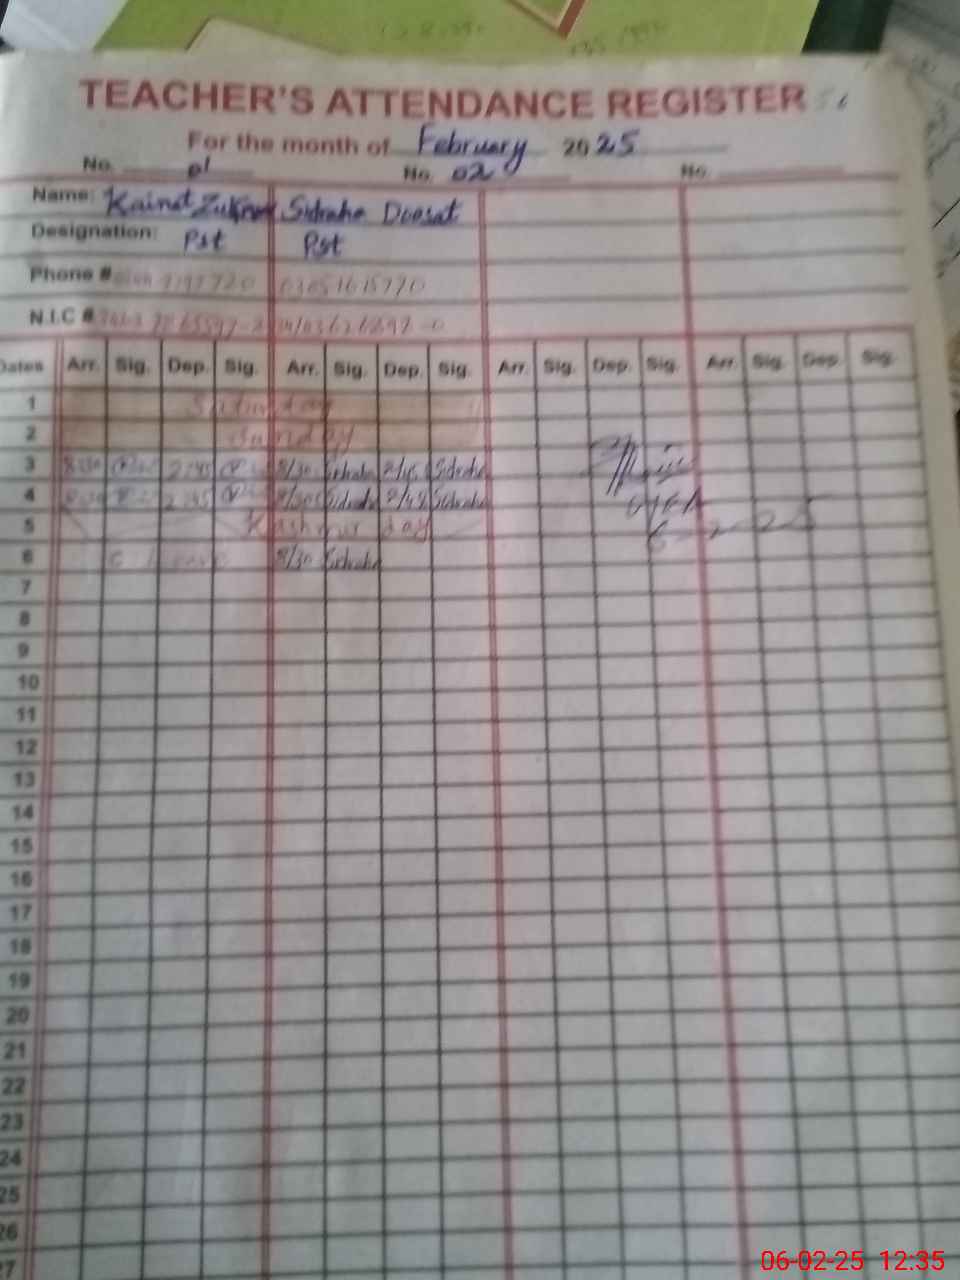 TEACHER'S ATTENDANCE REGISTER
For the month of February 2025
No. 01 No. 02 No.
Name: Kainat Sidraha Doosat
Designation: Pst Pst
Phone # 03051615770
N.I.C #
Dates Arr. Sig. Dep. Sig. Arr. Sig. Dep. Sig. Arr. Sig. Dep. Sig. Arr. Sig. Dep. Sig.
1 Saturday
2 Sunday
3 8:30 2:45 8/30 Sidraha 2/45 Sidraha
4 8:30 2:45 8/30 Sidraha 2/45 Sidraha
5 Kashmir day
6 C leave 8/30 Sidraha
6-2-25
7
8
9
10
11
12
13
14
15
16
17
18
19
20
21
22
23
24
25
26
27
06-02-25 12:35